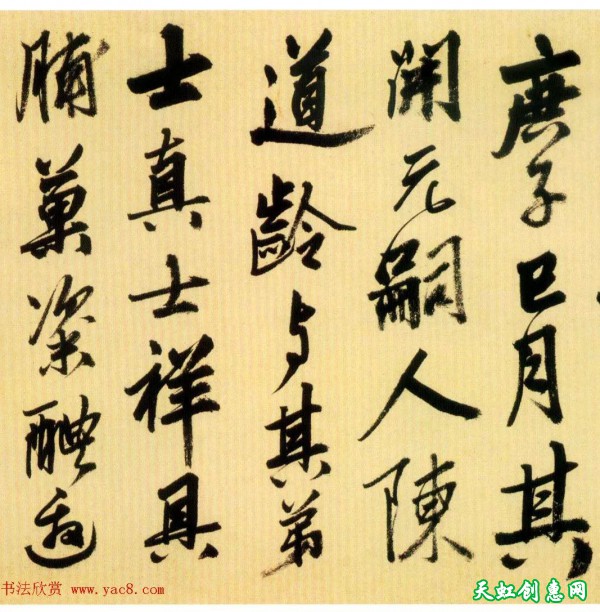 庚子巳月其
開元嗣人陳
道齡与其弟
士真士祥具
脯菓粢醴
书法欣赏 www.yac8.com
天虹创惠网